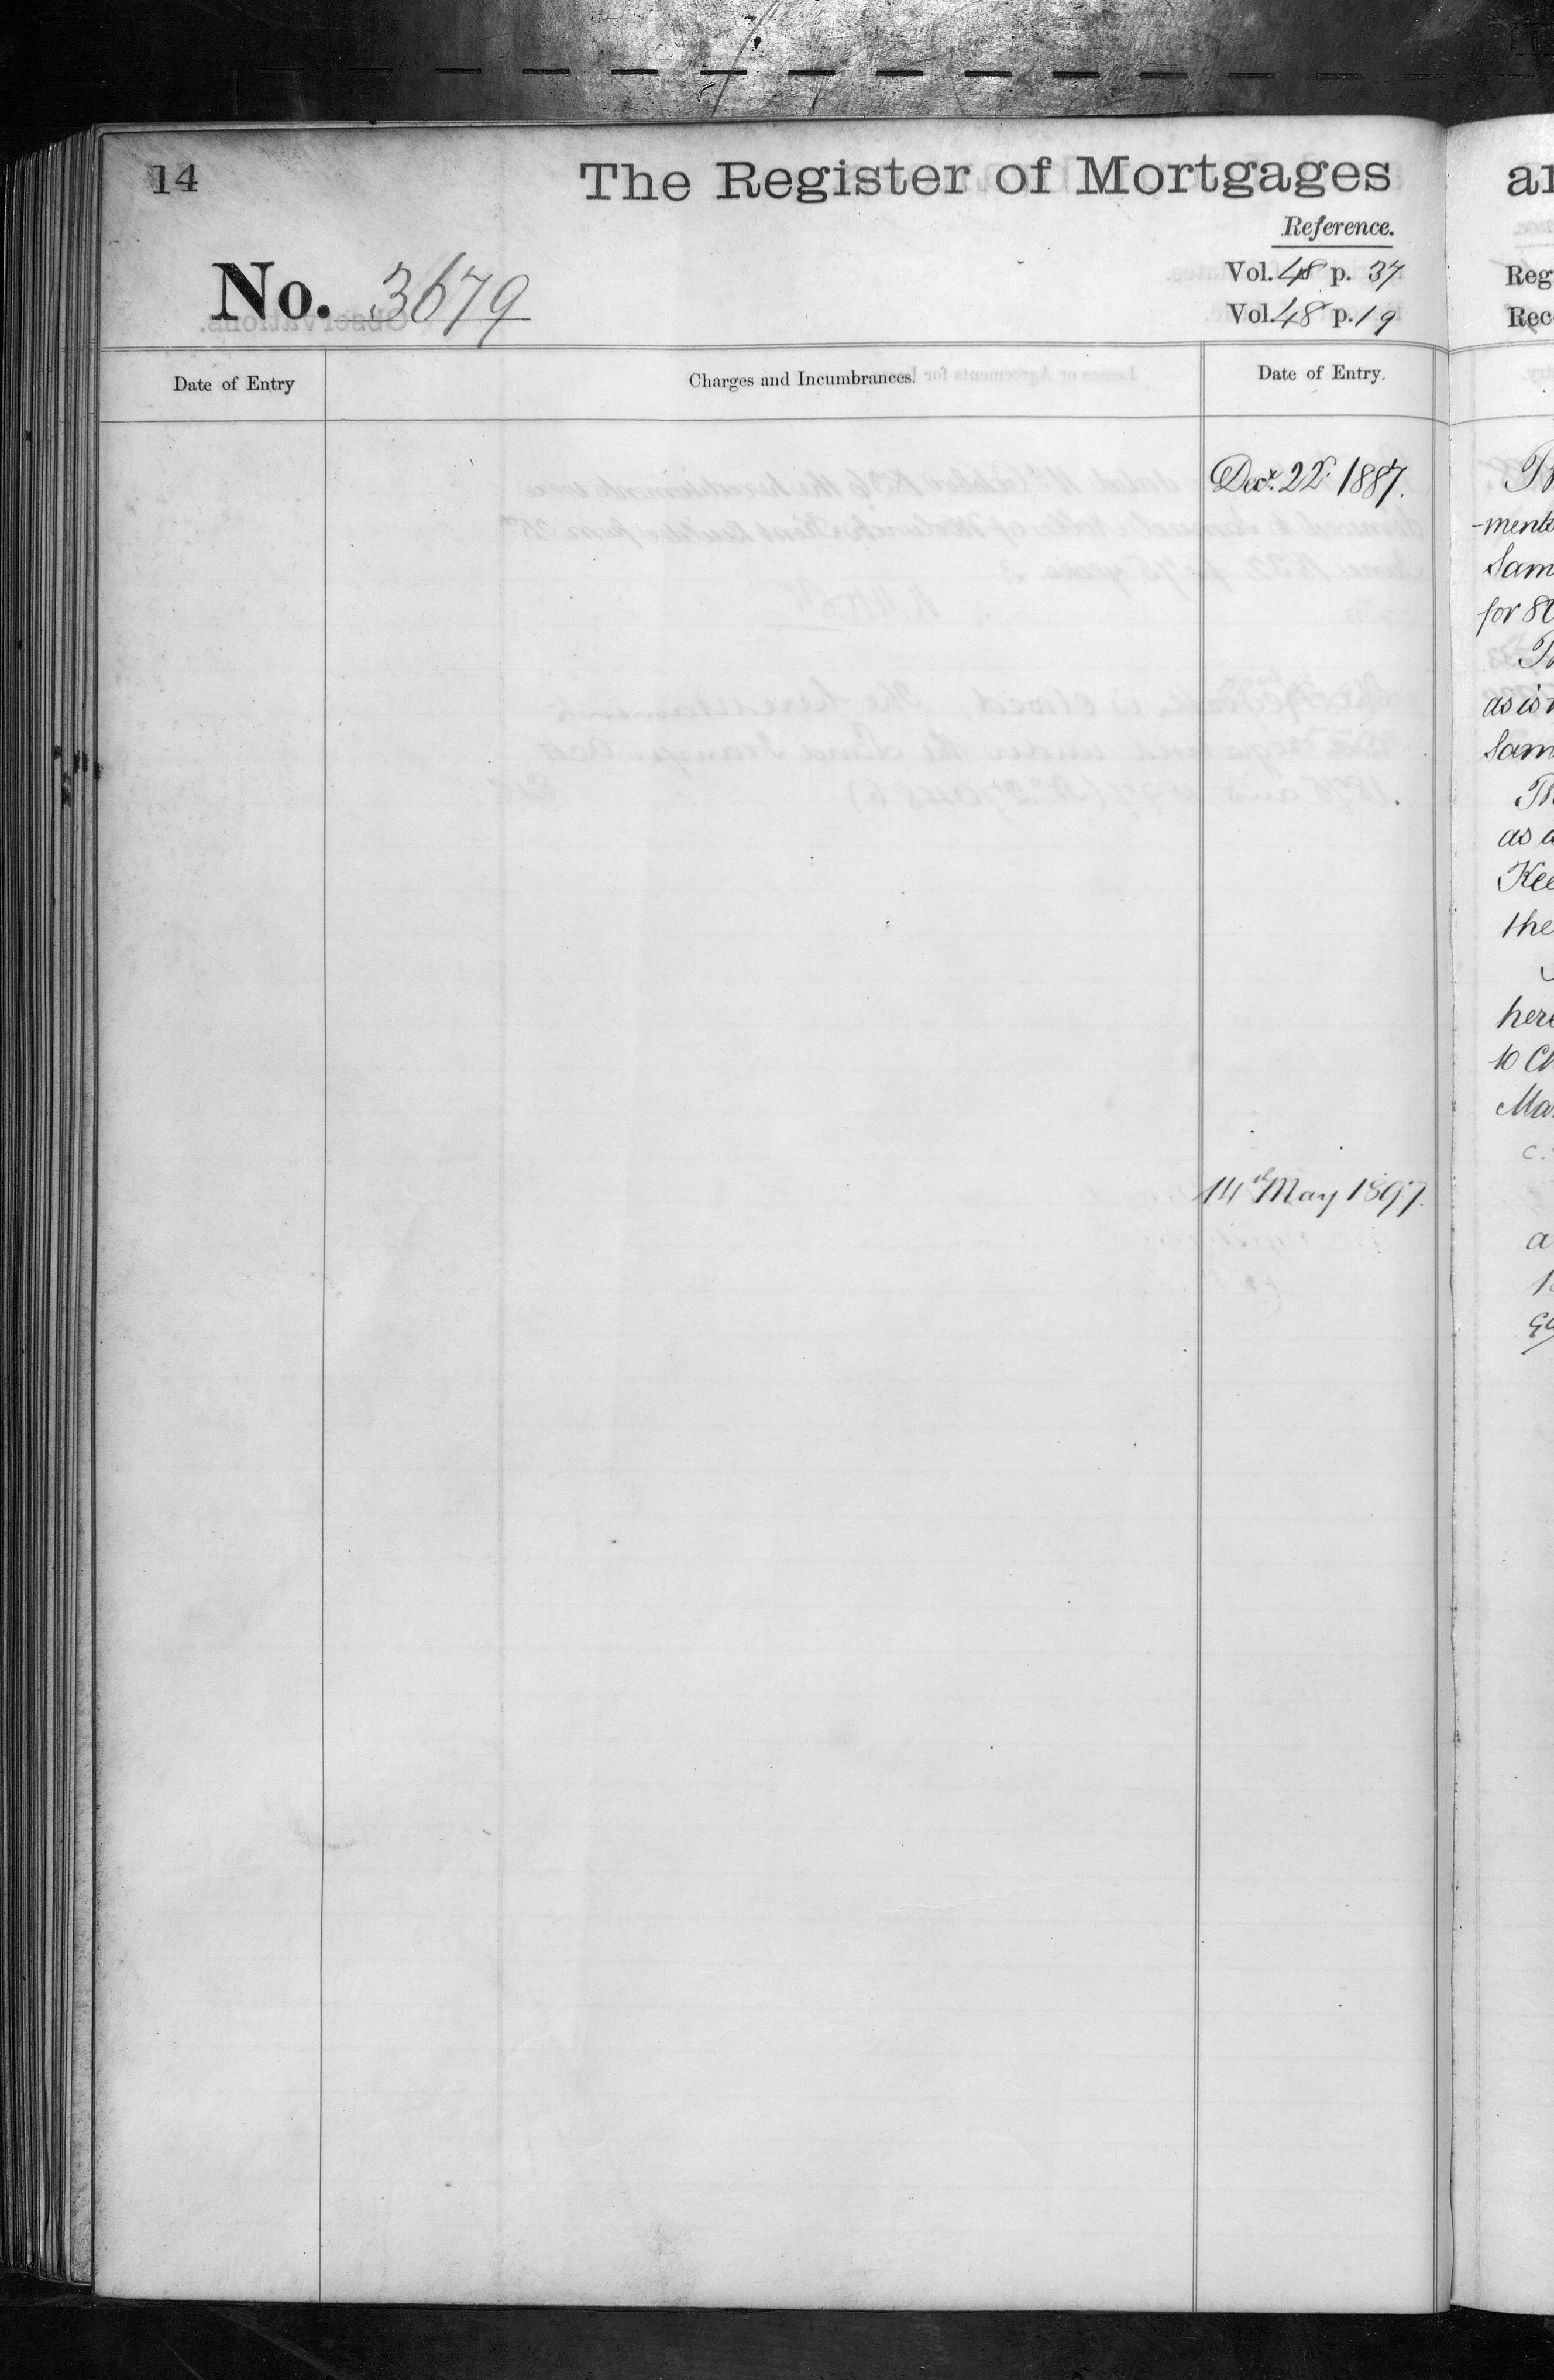 14
The Register of Mortgages
Reference.
No. 3679
Vol. 48 p. 37
Vol. 48 p. 19
Date of Entry
Charges and Incumbrances.
Date of Entry.
Decr. 22d. 1887.
14th May 1897.
Reg
Rec
-ments
Sam
for 80
as is
Sam
as
Kee
the
here
to Ch
Mar